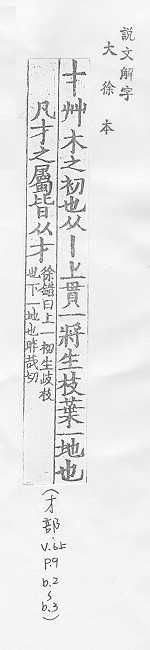 說文解字
大徐本
才艸木之初也从丨上貫一將生枝葉一地也
凡才之屬皆从才徐鍇曰上一初生歧枝
也下一地也昨哉切
(才部
V.6上
P.9
b.2
~
b.3)